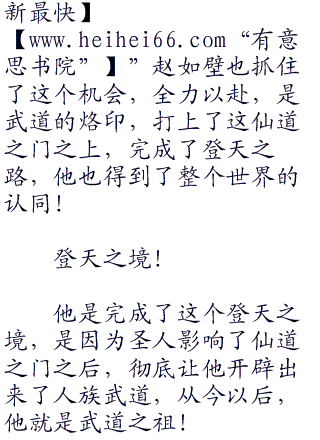 新最快】
【www.heihei66.com“有意
思书院”】”赵如壁也抓住
了这个机会，全力以赴，是
武道的烙印，打上了这仙道
之门之上，完成了登天之
路，他也得到了整个世界的
认同！
登天之境！
他是完成了这个登天之
境，是因为圣人影响了仙道
之门之后，彻底让他开辟出
来了人族武道，从今以后，
他就是武道之祖！